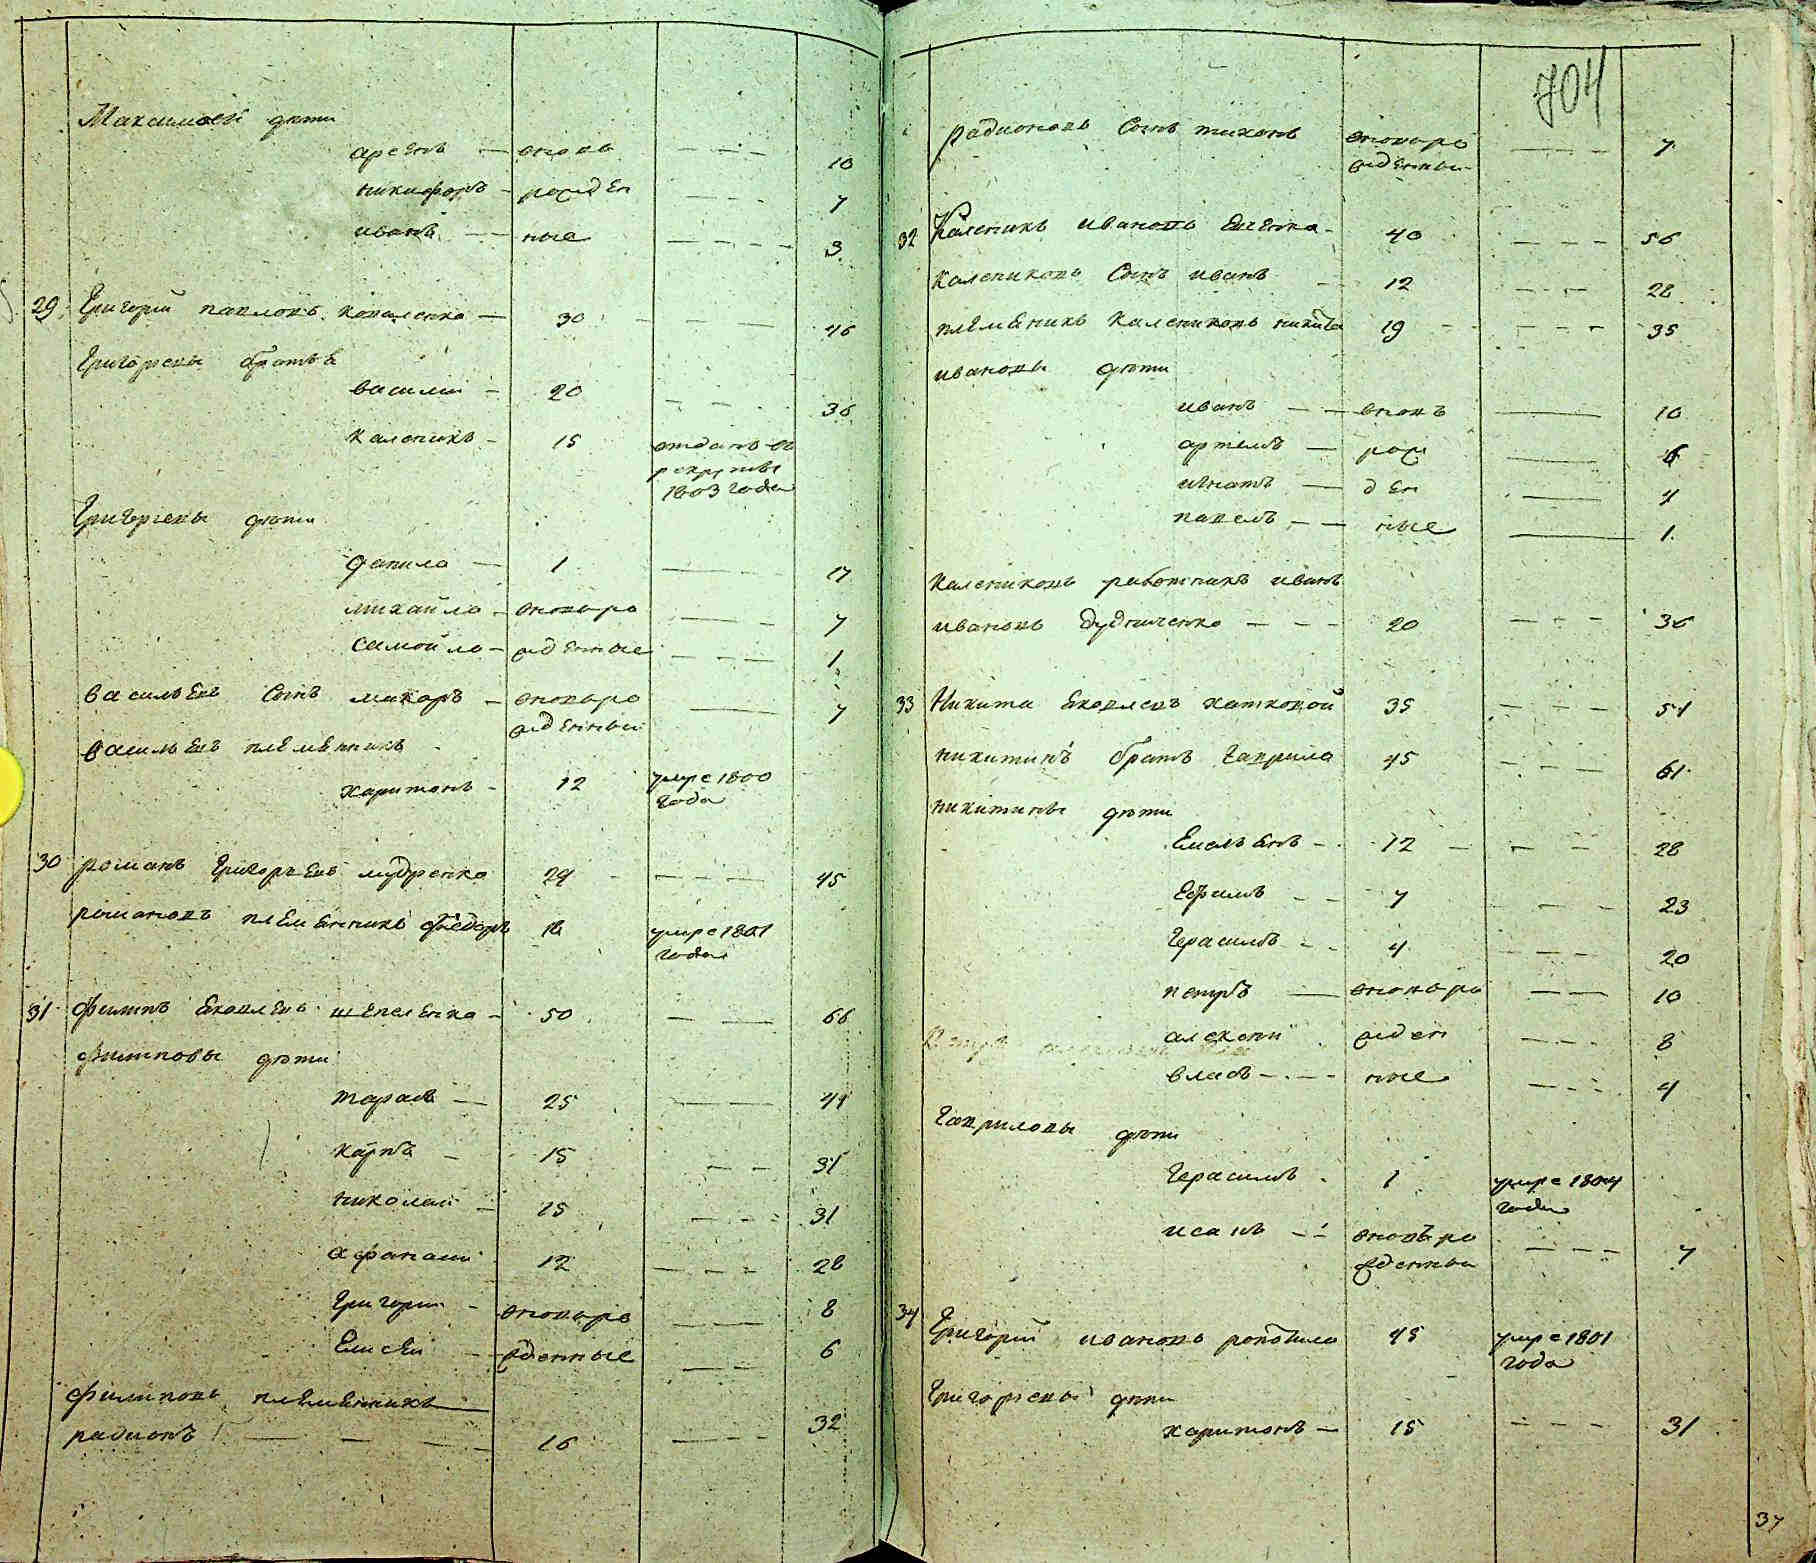 Максимовы дѣти
арсенъ — вновь — 10
никифоръ — рожден — 7
иванъ — ные — 3
29 Григорій павловъ коваленко — 30 — 46
Григорьевы братья
василий — 20 — 36
каленикъ — 15 отданъ въ
рекруты
1803 года
Григорьевы дѣти
данило — 1 — 17
михайло — вновьро — 7
самойло — жденные — 1
васильевъ сынъ макаръ — вновьро — 7
жденный
васильевъ племянникъ
харитонъ — 12 умре 1800
года
30 романъ Григорьевъ мудренко 29 — 45
романовъ племянникъ федоръ 18 умре 1801
года
31 филипъ яковлевъ шепеленко — 50 — 66
филиповы дѣти
тарасъ — 25 — 41
карпъ — 15 — 31
николай — 15 — 31
афанасий 12 — 28
Григорий — вновьро — 8
Елисей — жденные — 6
филиповъ племянникъ
радионъ — 16 — 32
704
радионовъ сынъ тихонъ вновьро — 7
жденный
32 Каленикъ ивановъ — 40 — 56
калениковъ сынъ иванъ — 12 — 28
племяникъ калениковъ никита 19 — 35
ивановы дѣти
иванъ — вновъ — 10
артемъ — рож — 6
игнатъ — ден — 4
павелъ — ные — 1
калениковъ работникъ иванъ
ивановъ дудниченко — 20 — 36
33 Никита яковлевъ хатковой 35 — 51
никитинъ братъ Гаврило 45 — 61
никитины дѣти
Емельянъ — 12 — 28
Ефимъ — 7 — 23
Герасимъ — 4 — 20
петръ — вновьро — 10
алексѣй жден — 8
власъ — ные — 4
Гавриловы дѣти
Герасимъ 1 умре 1804
года
исакъ — вновьро — 7
жденный
34 Григорий ивановъ 45 умре 1801
года
Григорьевы дѣти
харитонъ — 15 — 31
37